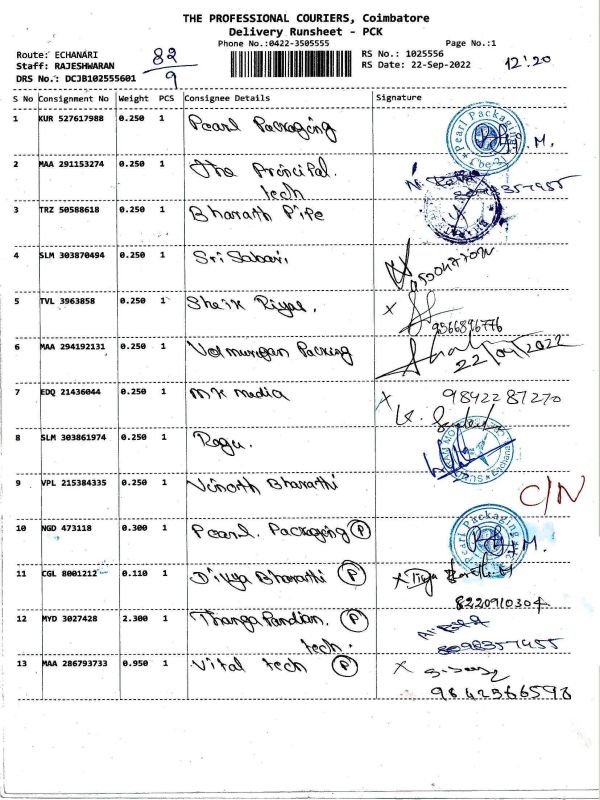 THE PROFESSIONAL COURIERS, Coimbatore
Delivery Runsheet - PCK
Phone No.:0422-3505555 Page No.:1
Route: ECHANARI RS No.: 1025556
Staff: RAJESHWARAN 82/9 RS Date: 22-Sep-2022 12:20
DRS No.: DCJB102555601
S No Consignment No Weight PCS Consignee Details Signature
1 KUR 527617988 0.250 1 Pearl Packaging Pearl Packaging
2 MAA 291153274 0.250 1 The Principal.
tech
3 TRZ 50588618 0.250 1 Bharath Pipe
4 SLM 303870494 0.250 1 Sri Sabari.
5 TVL 3963858 0.250 1 Sheik Riyas.
9566896776
6 MAA 294192131 0.250 1 Velmurugan Packing
22/09/2022
7 EDQ 21436044 0.250 1 MK media 9842287270
8 SLM 303861974 0.250 1 Ragu.
9 VPL 215384335 0.250 1 Vinoth Bharathi C/N
10 NGD 473118 0.300 1 Pearl. Packaging P Pearl Packaging
11 CGL 8001212 0.110 1 Divya Bharathi P
8220910304
12 MYD 3027428 2.300 1 Thanga Pandian. P
tech.
13 MAA 286793733 0.950 1 Vital tech P
9842566598